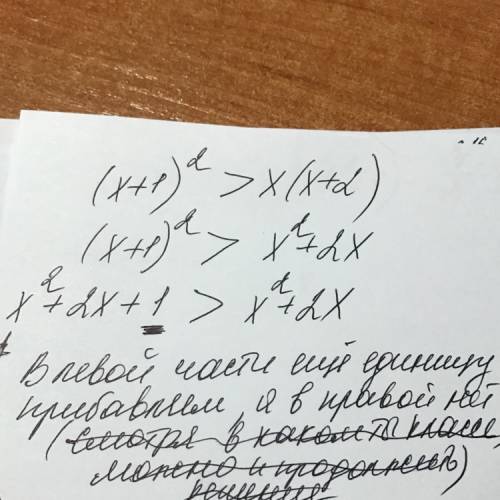 (x+1)² > x(x+2)
(x+1)² > x²+2x
x²+2x+1 > x²+2x
В левой части ещё единицу
прибавляем, а в правой нет
(смотря в каком ты классе,
можно и продолжить)
решение